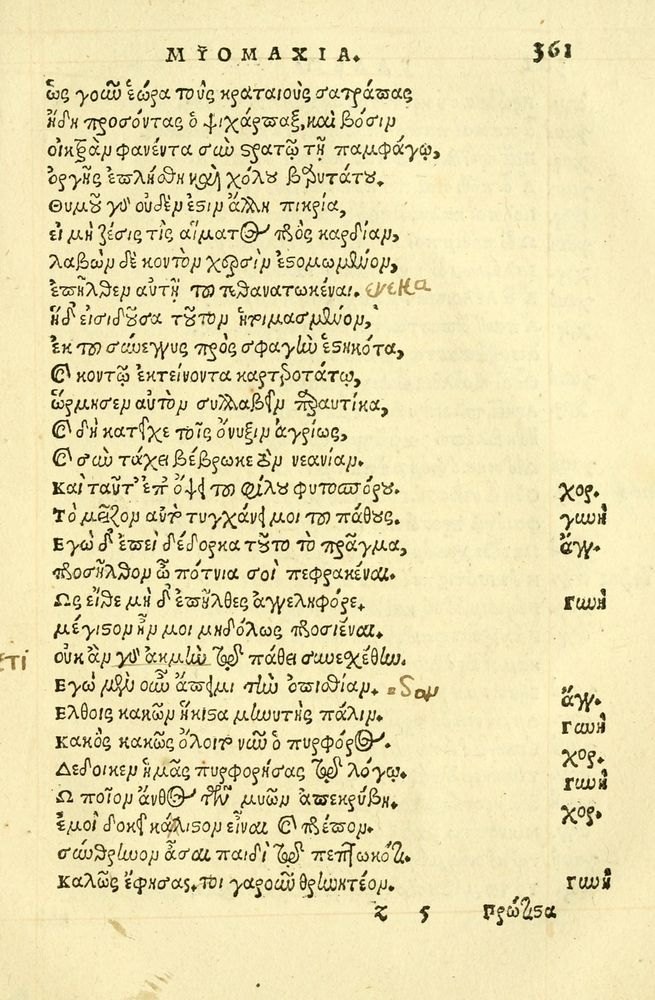 ΜΥΟΜΑΧΙΑ. 361
ὡς γοῦν ἑώρα τοὺς κραταιοὺς σατράπας
ἤδη προσόντας ὁ ψιχάρπαξ, καὶ βόσιν
οἰκτρὰν φανέντα σὺν στρατῷ τῇ παμφάγῳ,
ὀργῆς ἐπλήσθη καὶ χόλου βαρυτάτου.
Θυμοῦ γὰρ οὐδέν ἐστιν ἄλλη πικρία,
εἰ μὴ ζέσις τὶς αἵματος πρὸς καρδίαν,
λαβὼν δὲ κοντὸν χερσὶν ἐστομωμένον,
ἐπῆλθεν αὐτῇ τοῦ τεθανατωκέναι. ενεκα
ἡδ' εἰσιδοῦσα τοῦτον ἠτιμασμένον,
ἐκ τοῦ σύνεγγυς πρὸς σφαγὴν ἑστηκότα,
καὶ κοντῷ ἐκτείνοντα καρτεροτάτῳ,
ὥρμησεν αὐτὸν συλλαβεῖν παραυτίκα,
καὶ δὴ κατεῖχε τοῖς ὄνυξιν ἀγρίως,
καὶ σὺν τάχει βέβρωκε τὸν νεανίαν.
Καὶ ταῦτ' ἐπ' ὄψει τοῦ φίλου φυτοσπόρου. χορ.
Τὸ μεῖζον αὐτὸ τυγχάνει μοι τοῦ πάθους. γυνὴ
Ἐγὼ δ' ἐπεὶ δέδορκα τοῦτο τὸ πρᾶγμα, ἄγγ.
προσῆλθον ὦ πότνια σοὶ πεφρακέναι.
Ὡς εἴθε μὴ δ' ἐπῆλθες ἀγγεληφόρε. Γυνὴ
μέγιστον ἦν μοι μηδόλως προσιέναι.
οὐκ ἂν γὰρ ἀκμὴν τῷ πάθει συνεσχέθην. ετι
Ἐγὼ μὲν οὖν ἄπειμι τὴν ὀπισθίαν. οδον ἄγγ.
Ἔλθοις κακῶν ἥκιστα μηνυτὴς πάλιν. Γυνὴ
Κακὸς κακῶς ὄλοιτο νῦν ὁ πυρφόρος. χορ.
Δέδοικεν ἡμᾶς πυρφορήσας τῷ λόγῳ. Γυνὴ
Ὢ ποῖον ἄνθος τῶν μυῶν ἀπεκρύβη. χορ.
ἐμοὶ δοκεῖ κάλλιστον εἶναι καὶ πρέπον.
σύνθρηνον ᾆσαι παιδὶ τῷ πεπτωκότι.
Καλῶς ἔφησας. τοι γαροῦν θρηνητέον. Γυνὴ
Z 5 Πρώτιστα